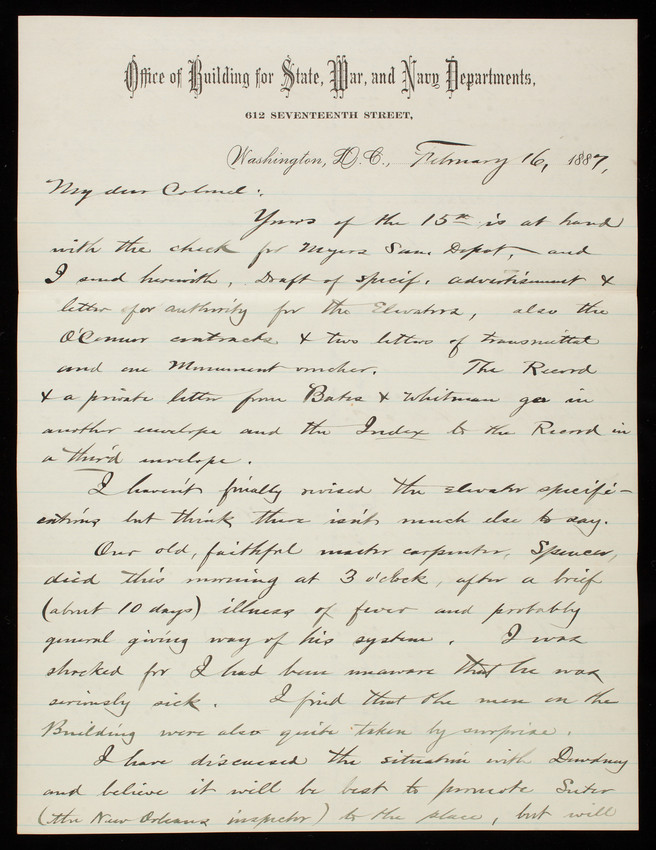 Office of Building for State, War, and Navy Departments,
612 SEVENTEENTH STREET,
Washington, D.C., February 16, 1887,
My dear Colonel:
Yours of the 15th is at hand
with the check for Myers Sam. Depot, and
I send herewith, Draft of specif. advertisment &
letter for authority for the Elevators, also the
O'Connor contracts & two letters of transmittal
and one Monument voucher. The Record
& a private letter from Bates & Whitman go in
another envelope and the Index to the Record in
a third envelope.
I havent finally revised the elevator specifi-
cations but think there isnt much else to say.
Our old, faithful master carpenter, Spencer,
died this morning at 3 o'clock, after a brief
(about 10 days) illness of fever and probably
general giving way of his system. I was
shocked for I had been unaware that he was
seriously sick. I find that the men on the
Building were also quite taken by surprise.
I have discussed the situation with Dewdney
and believe it will be best to promote Suter
(the New Orleans inspector) to the place, but will